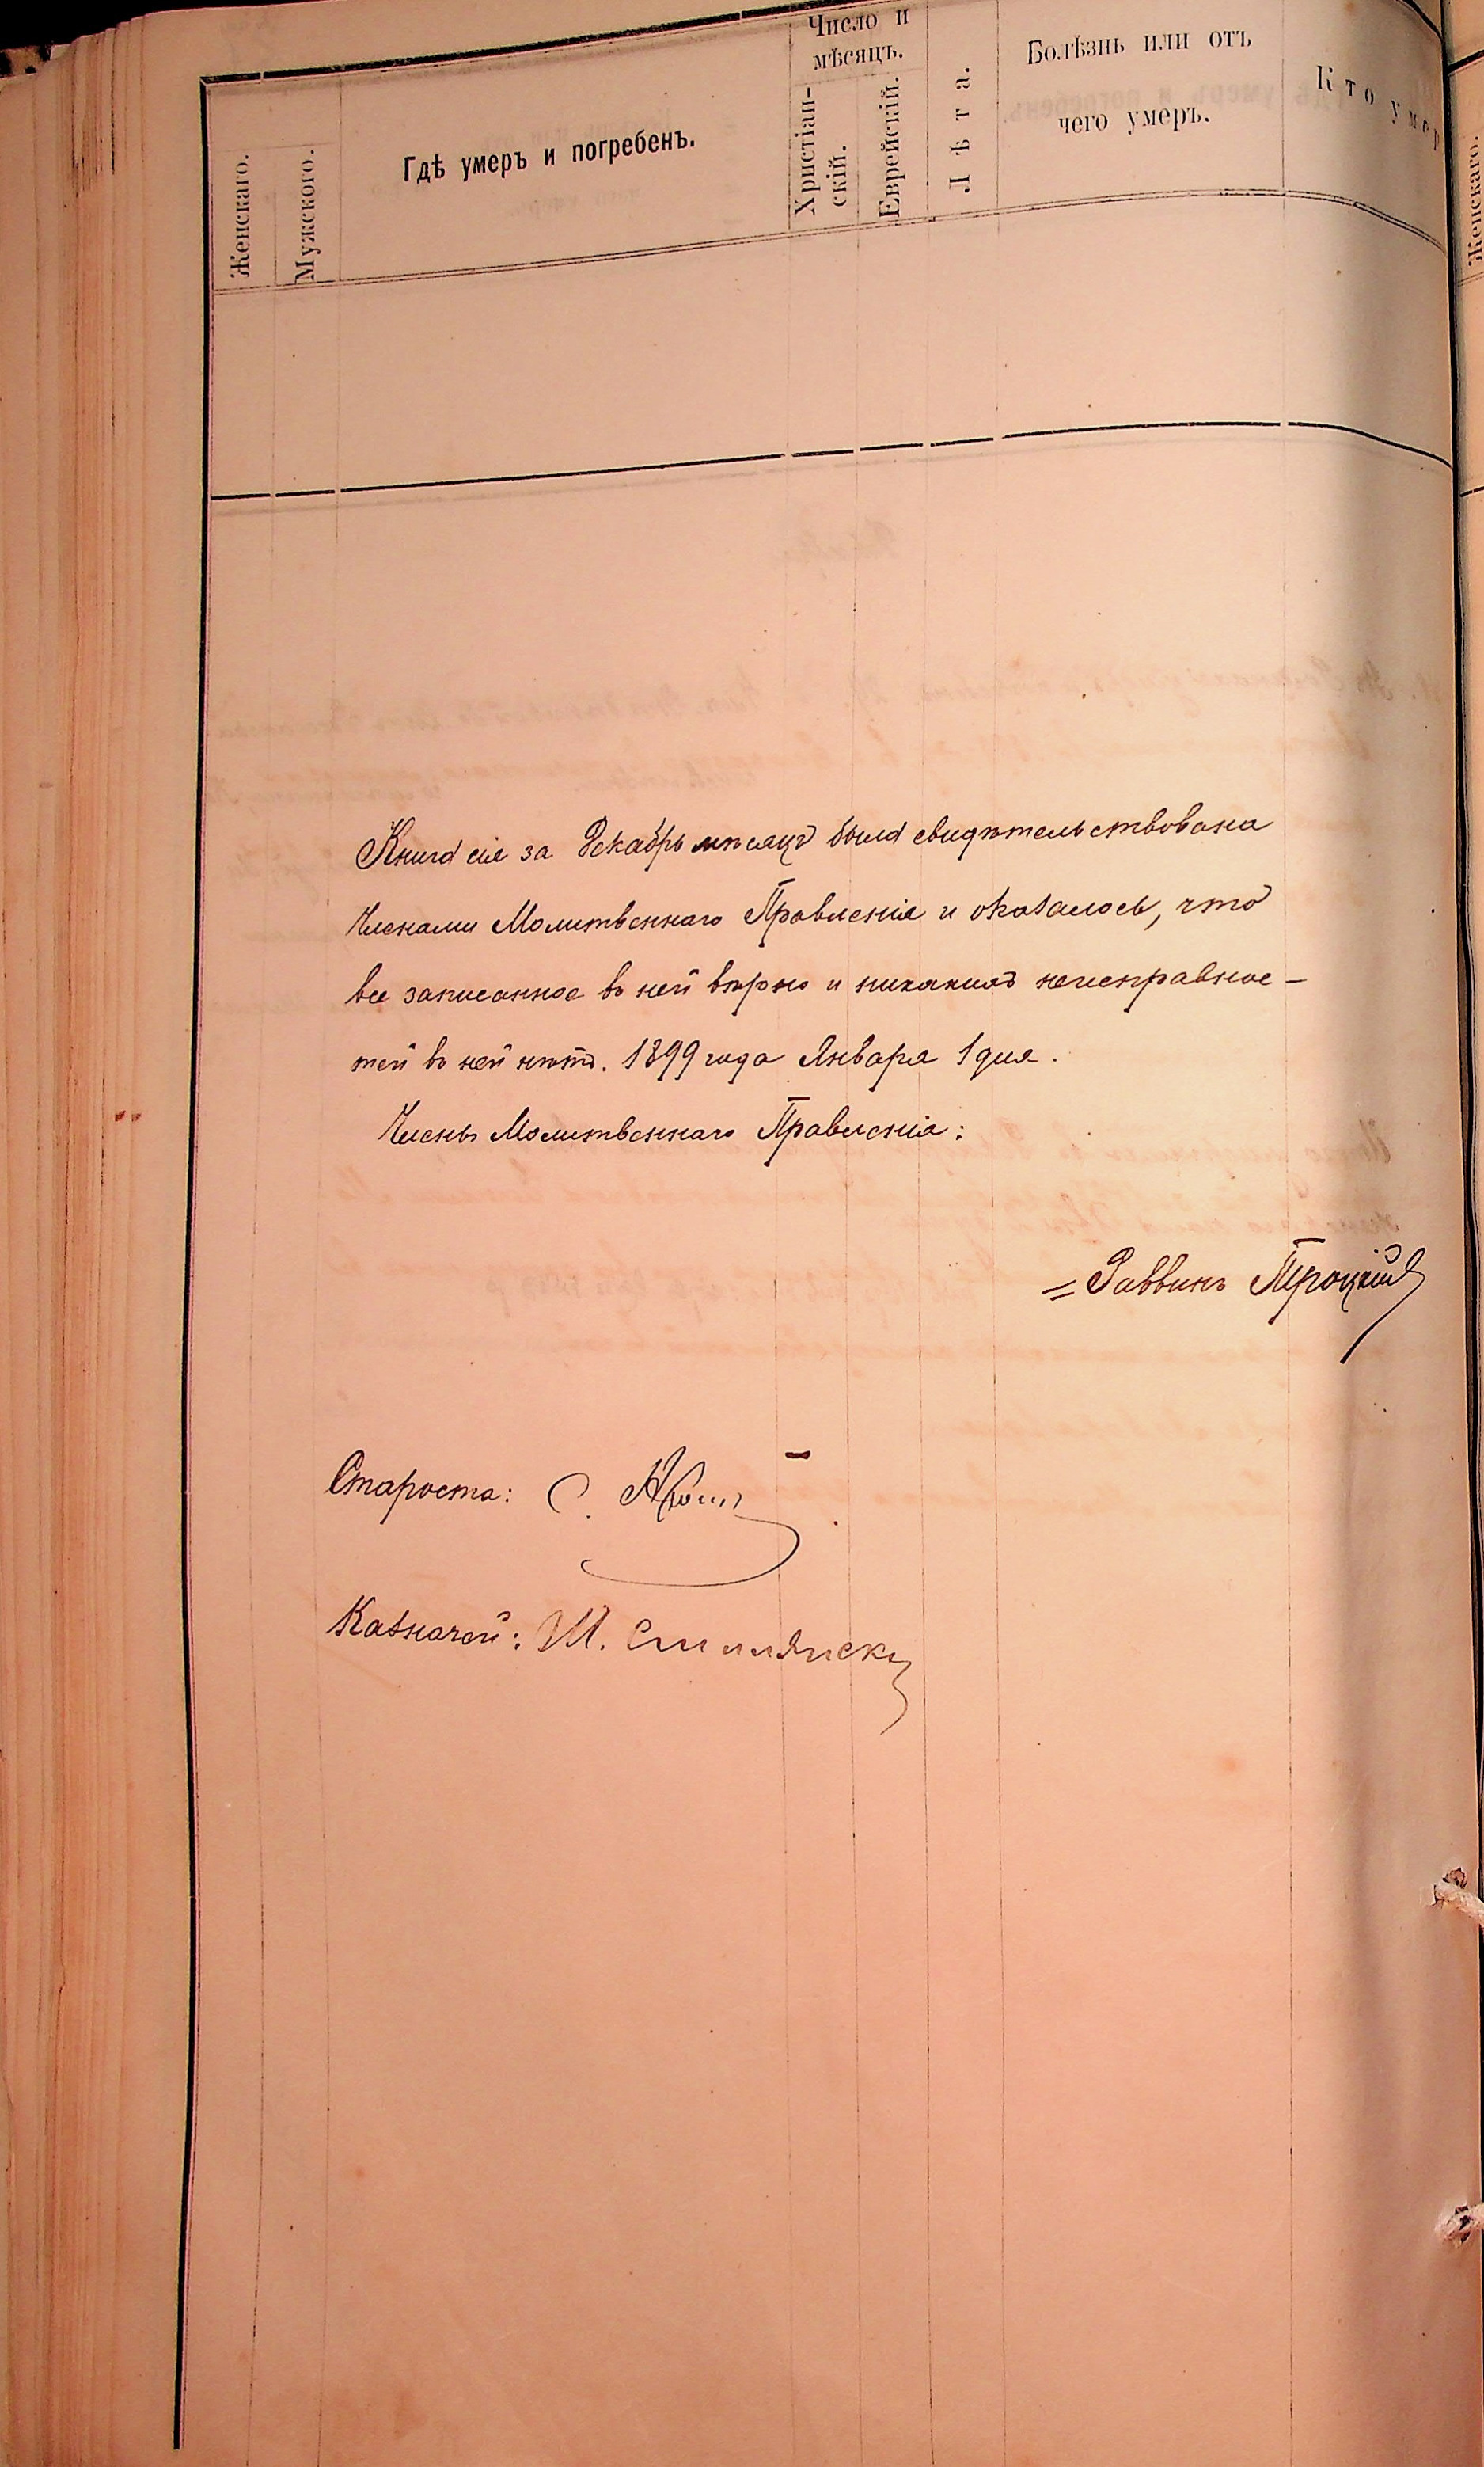 Женскаго.
Мужского.
Гдѣ умеръ и погребенъ.
Число и
мѣсяцъ.
Христіан-
скій.
Еврейскій.
Лѣта.
Болѣзнь или отъ
чего умеръ.
Кто умер
Женскаго.
Книга сія за Декабрь мѣсяцъ была свидѣтельствована
Членами Молитвеннаго Правленія и оказалось, что
все записанное въ ней вѣрно и никакихъ неисправнос-
тей въ ней нѣтъ. 1899 года Января 1 дня.
Члены Молитвеннаго Правленія:
= Раввинъ Троцкій
Староста: С.
Казначей: Ш. Смилянски